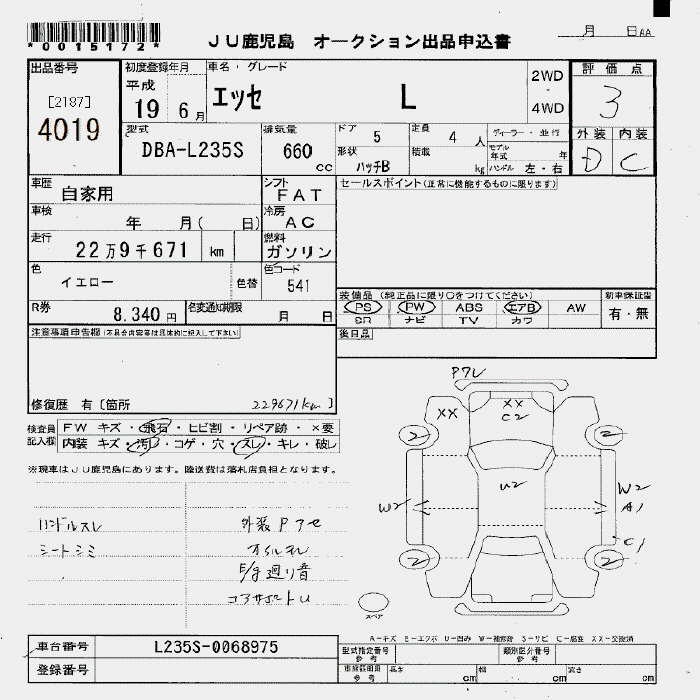 *0015172*
JU鹿児島 オークション出品申込書
月 日AA
出品番号
[2187]
4019
初度登録年月
平成
19 6月
車名・グレード
エッセ L
2WD
・
4WD
評価点
3
外装 内装
D C
型式
DBA-L235S
排気量
660
cc
ドア 5
定員 4 人
ディーラー・並行
形状
ハッチB
積載 kg
モデル年式 年
ハンドル 左・右
車歴
自家用
シフト
FAT
セールスポイント(正常に機能するものに限ります)
車検
年 月( 日)
冷房
AC
走行
22万9千671 km
燃料
ガソリン
色
イエロー
色替
色コード
541
装備品(純正品に限り○をつけてください)
PS PW ABS エアB AW
SR ナビ TV カワ
新車保証書
有・無
R券
8,340円
名変通知期限
月 日
後日品
注意事項申告欄(不具合内容等は具体的に記入して下さい)
修復歴 有〔箇所 229671km 〕
検査員記入欄
FW キズ・飛石・ヒビ割・リペア跡・×要
内装 キズ・汚れ・コゲ・穴・スレ・キレ・破レ
※現車はJU鹿児島にあります。陸送費は落札店負担となります。
ハンドルスレ
シートシミ
外装Pアセ
オイルモレ
E/g廻り音
Pアレ
XX
XX
C2
2
2
U2
W2
W2
A1
C1
2
2
スペア
A-キズ E-エクボ U-凹み W-補修跡 S-サビ C-腐食 XX-交換済
車台番号
L235S-0068975
登録番号
型式指定番号
参考
類別区分番号
参考
車検証明車
参考
長さ cm
幅 cm
高さ cm